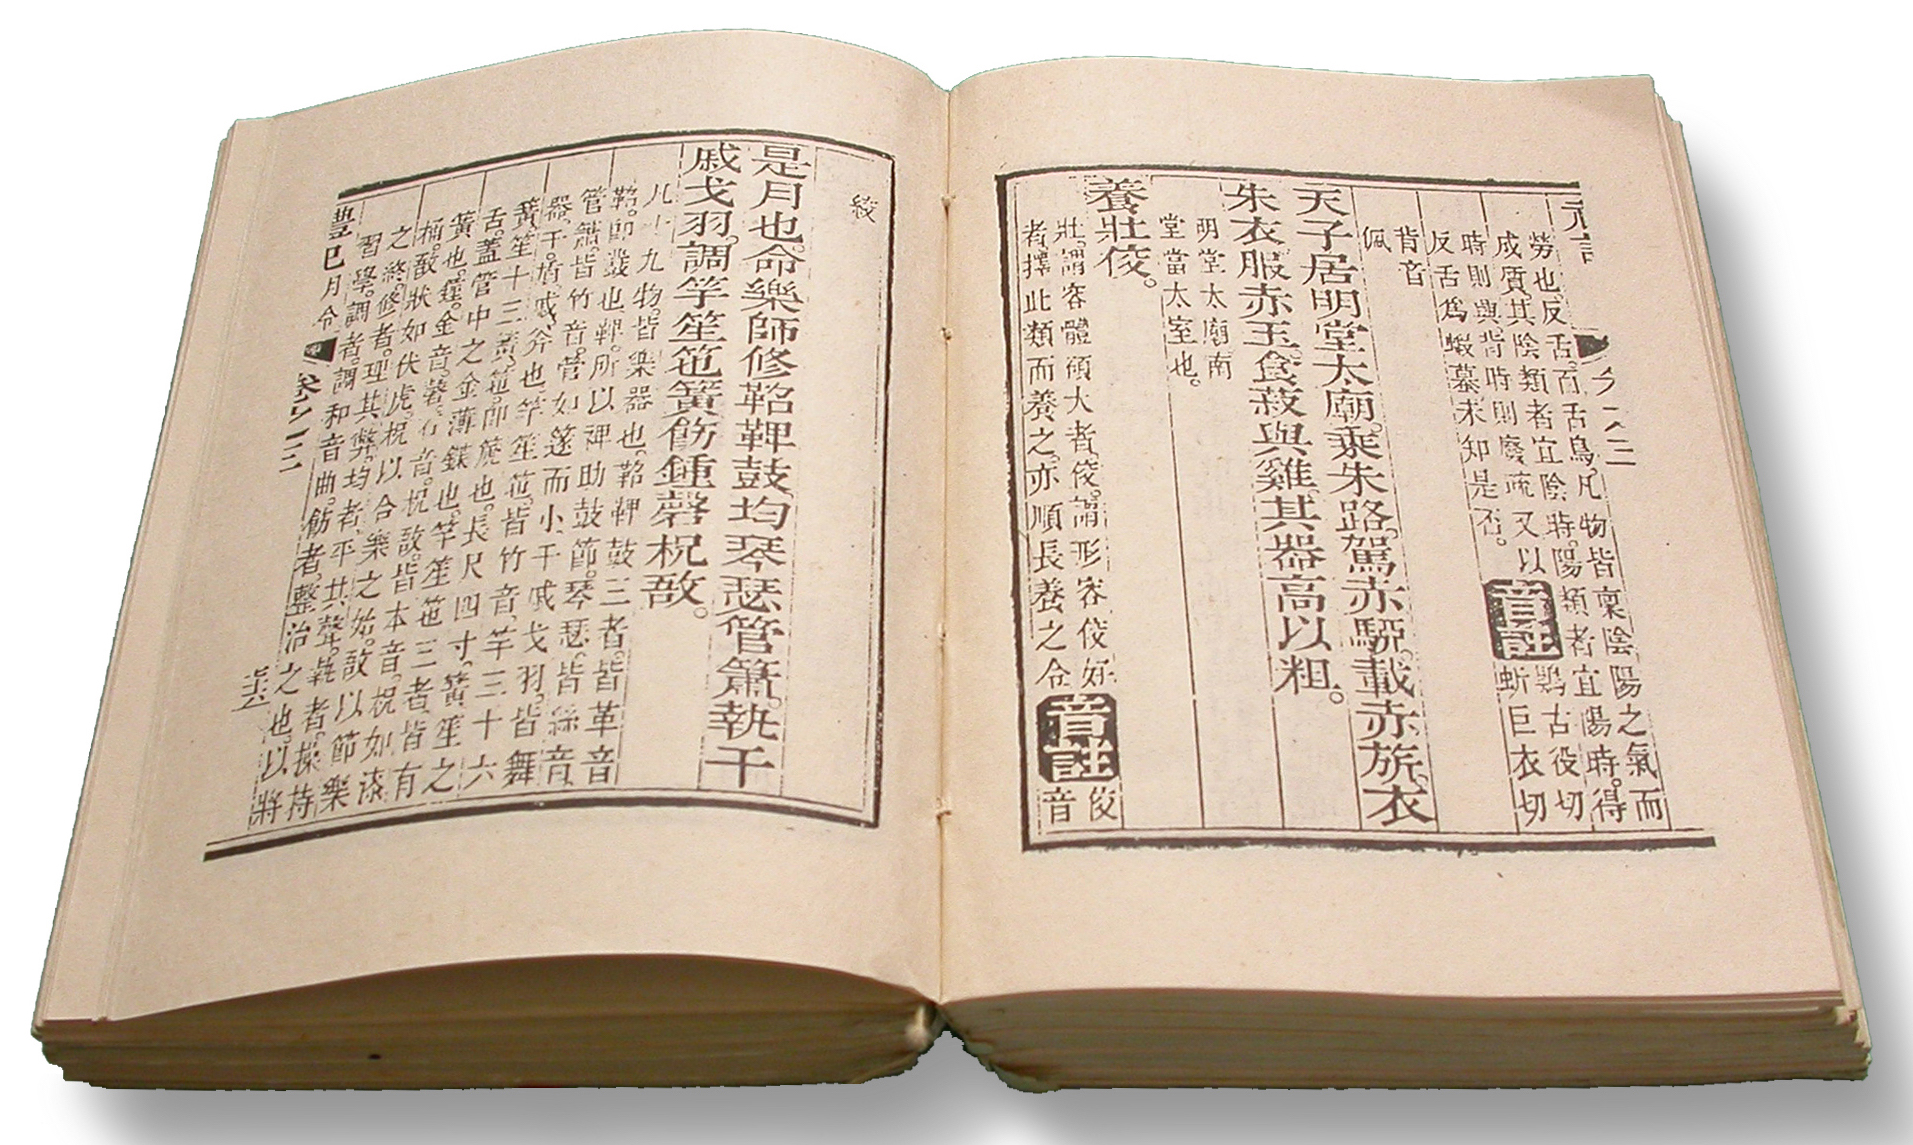 勞也。反舌。百舌鳥。凡物皆稟陰陽之氣而
成質。其陰類者宜陰時。陽類者宜陽時。得
時則興。背時則廢。疏又以
反舌爲蝦蟇。未知是否。
音註 鵙古役切
蚚巨衣切
背音
佩
天子居明堂太廟。乘朱路。駕赤騮。載赤旂。衣
朱衣。服赤玉。食菽與雞。其器高以粗。
明堂太廟南
堂當太室也。
養壯佼。
壯。謂容體碩大者。佼。謂形容佼好
者。擇此類而養之。亦順長養之令
音註 佼
音
絞
是月也。命樂師修鞀鞞鼓。均琴瑟管簫。執干
戚戈羽。調竽笙竾簧。飭鍾磬柷敔。
凡十九物。皆樂器也。鞀鞞鼓三者。皆革音
鞀。即鼗也。鞞。所以裨助鼓節。琴瑟。皆絲音
管簫。皆竹音。管如篴而小。干戚戈羽。皆舞
器。干。盾。戚。斧也。竽笙竾。皆竹音。竽三十六
簧。笙十三簧。竾即篪也。長尺四寸。簧。笙之
舌。蓋管中之金薄鍱也。竽笙竾三者。皆有
簧也。鍾。金音。磬。石音。柷敔。皆本音。柷如漆
桶。敔狀如伏虎。柷以合樂之始。敔以節樂
之終。修者。理其弊。均者。平其聲。執者。操持
習學。調者。調和音曲。飭者。整治之也。以將
月令 卷之三